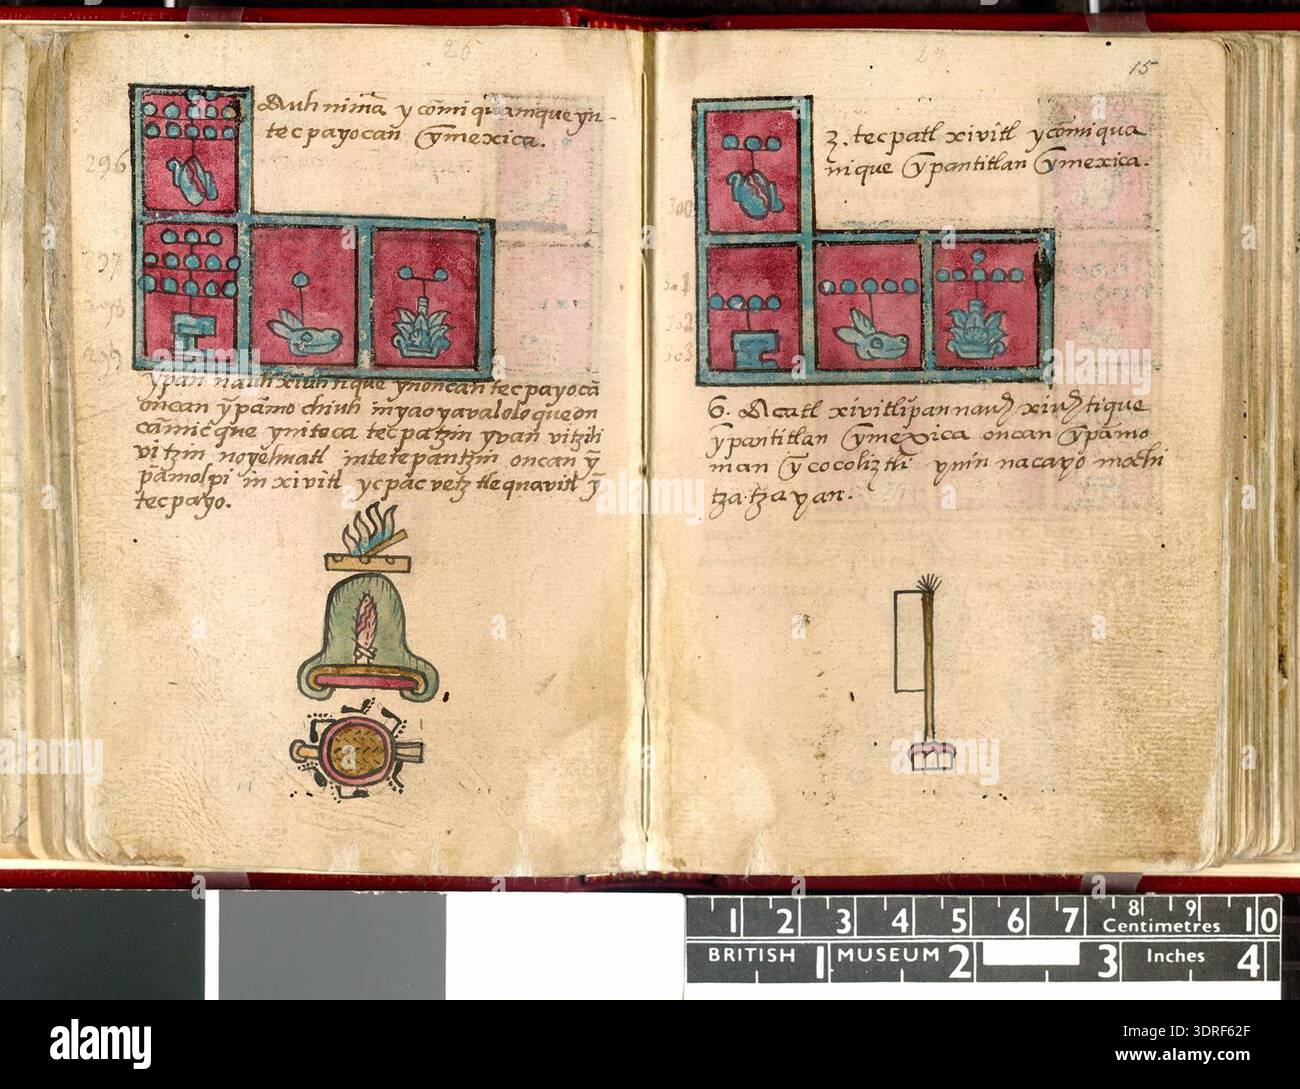 26
Auh nimã ycõmiquamique yn
tecpayocan ỹmexica.
296
297
298
299
ypan nauhxiuhtique ynoncan tecpayocã
oncan ypãmochiuh inyaoyavaloloque on
cãmicque yniteca tecpatzin yvan vitzili
vitzin noyehuatl intetepantzin oncan ỹ
pãmolpi inxivitl ycpac vetz tlequavitl ỹ
tecpayo.
27
15
2. tecpatl xivitl ycõmiqua
nique ỹpantitlan ỹmexica.
300
301
302
303
6. Acatl xivitlipan nauh xiuhtique
ỹpantitlan ỹmexica oncan ỹpãmo
man ỹcocoliztli ynin nacayo mochi
tzatzayan.
1 2 3 4 5 6 7 8 9 10
Centimetres
BRITISH MUSEUM Inches
1 2 3 4
alamy
Image ID: 3DRF62F
www.alamy.com